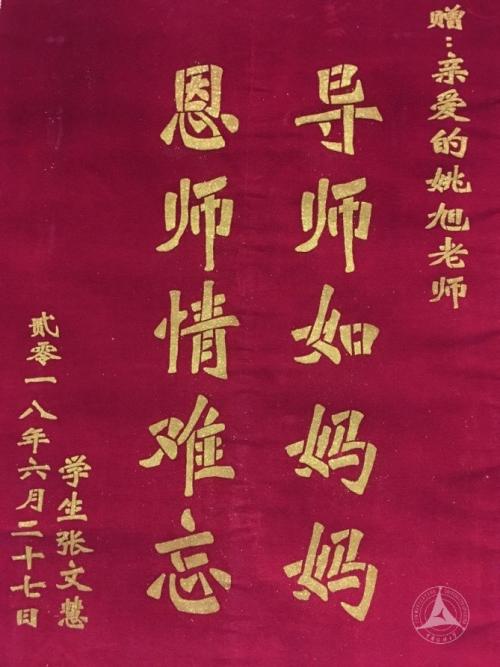 赠:亲爱的姚旭老师
导师如妈妈
恩师情难忘
学生张文慧
贰零一八年六月二十七日